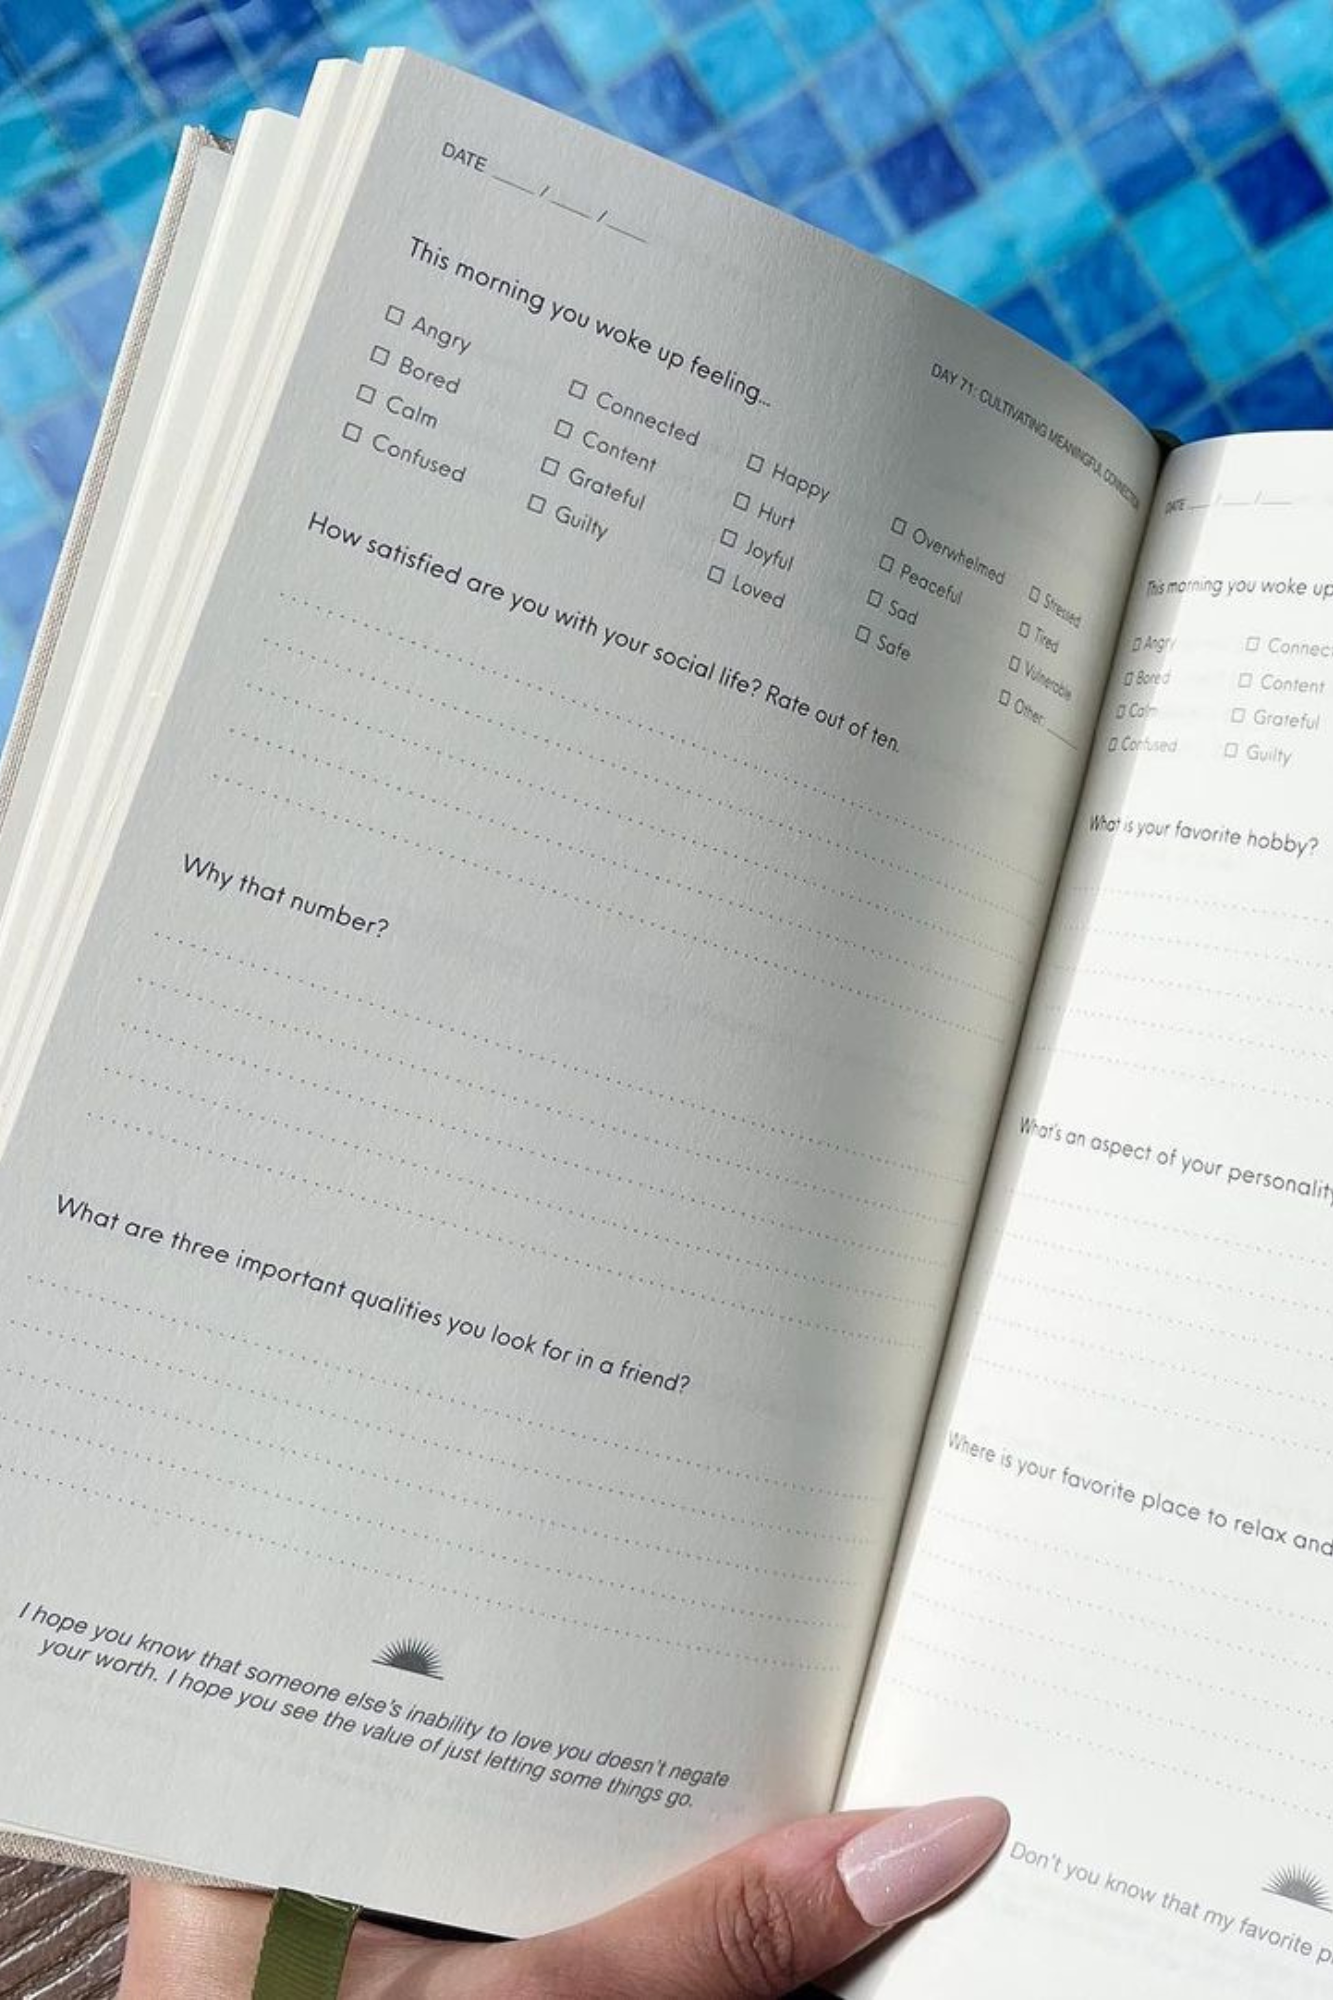 DATE ___ / ___ / ___
DAY 71: CULTIVATING MEANINGFUL CONNECTION
This morning you woke up feeling...
☐ Angry ☐ Connected ☐ Happy ☐ Overwhelmed ☐ Stressed
☐ Bored ☐ Content ☐ Hurt ☐ Peaceful ☐ Tired
☐ Calm ☐ Grateful ☐ Joyful ☐ Sad ☐ Vulnerable
☐ Confused ☐ Guilty ☐ Loved ☐ Safe ☐ Other: ___
How satisfied are you with your social life? Rate out of ten.
Why that number?
What are three important qualities you look for in a friend?
I hope you know that someone else's inability to love you doesn't negate
your worth. I hope you see the value of just letting some things go.
DATE ___ / ___ / ___
This morning you woke up
☐ Angry ☐ Connec
☐ Bored ☐ Content
☐ Calm ☐ Grateful
☐ Confused ☐ Guilty
What is your favorite hobby?
What's an aspect of your personality
Where is your favorite place to relax and
Don't you know that my favorite p